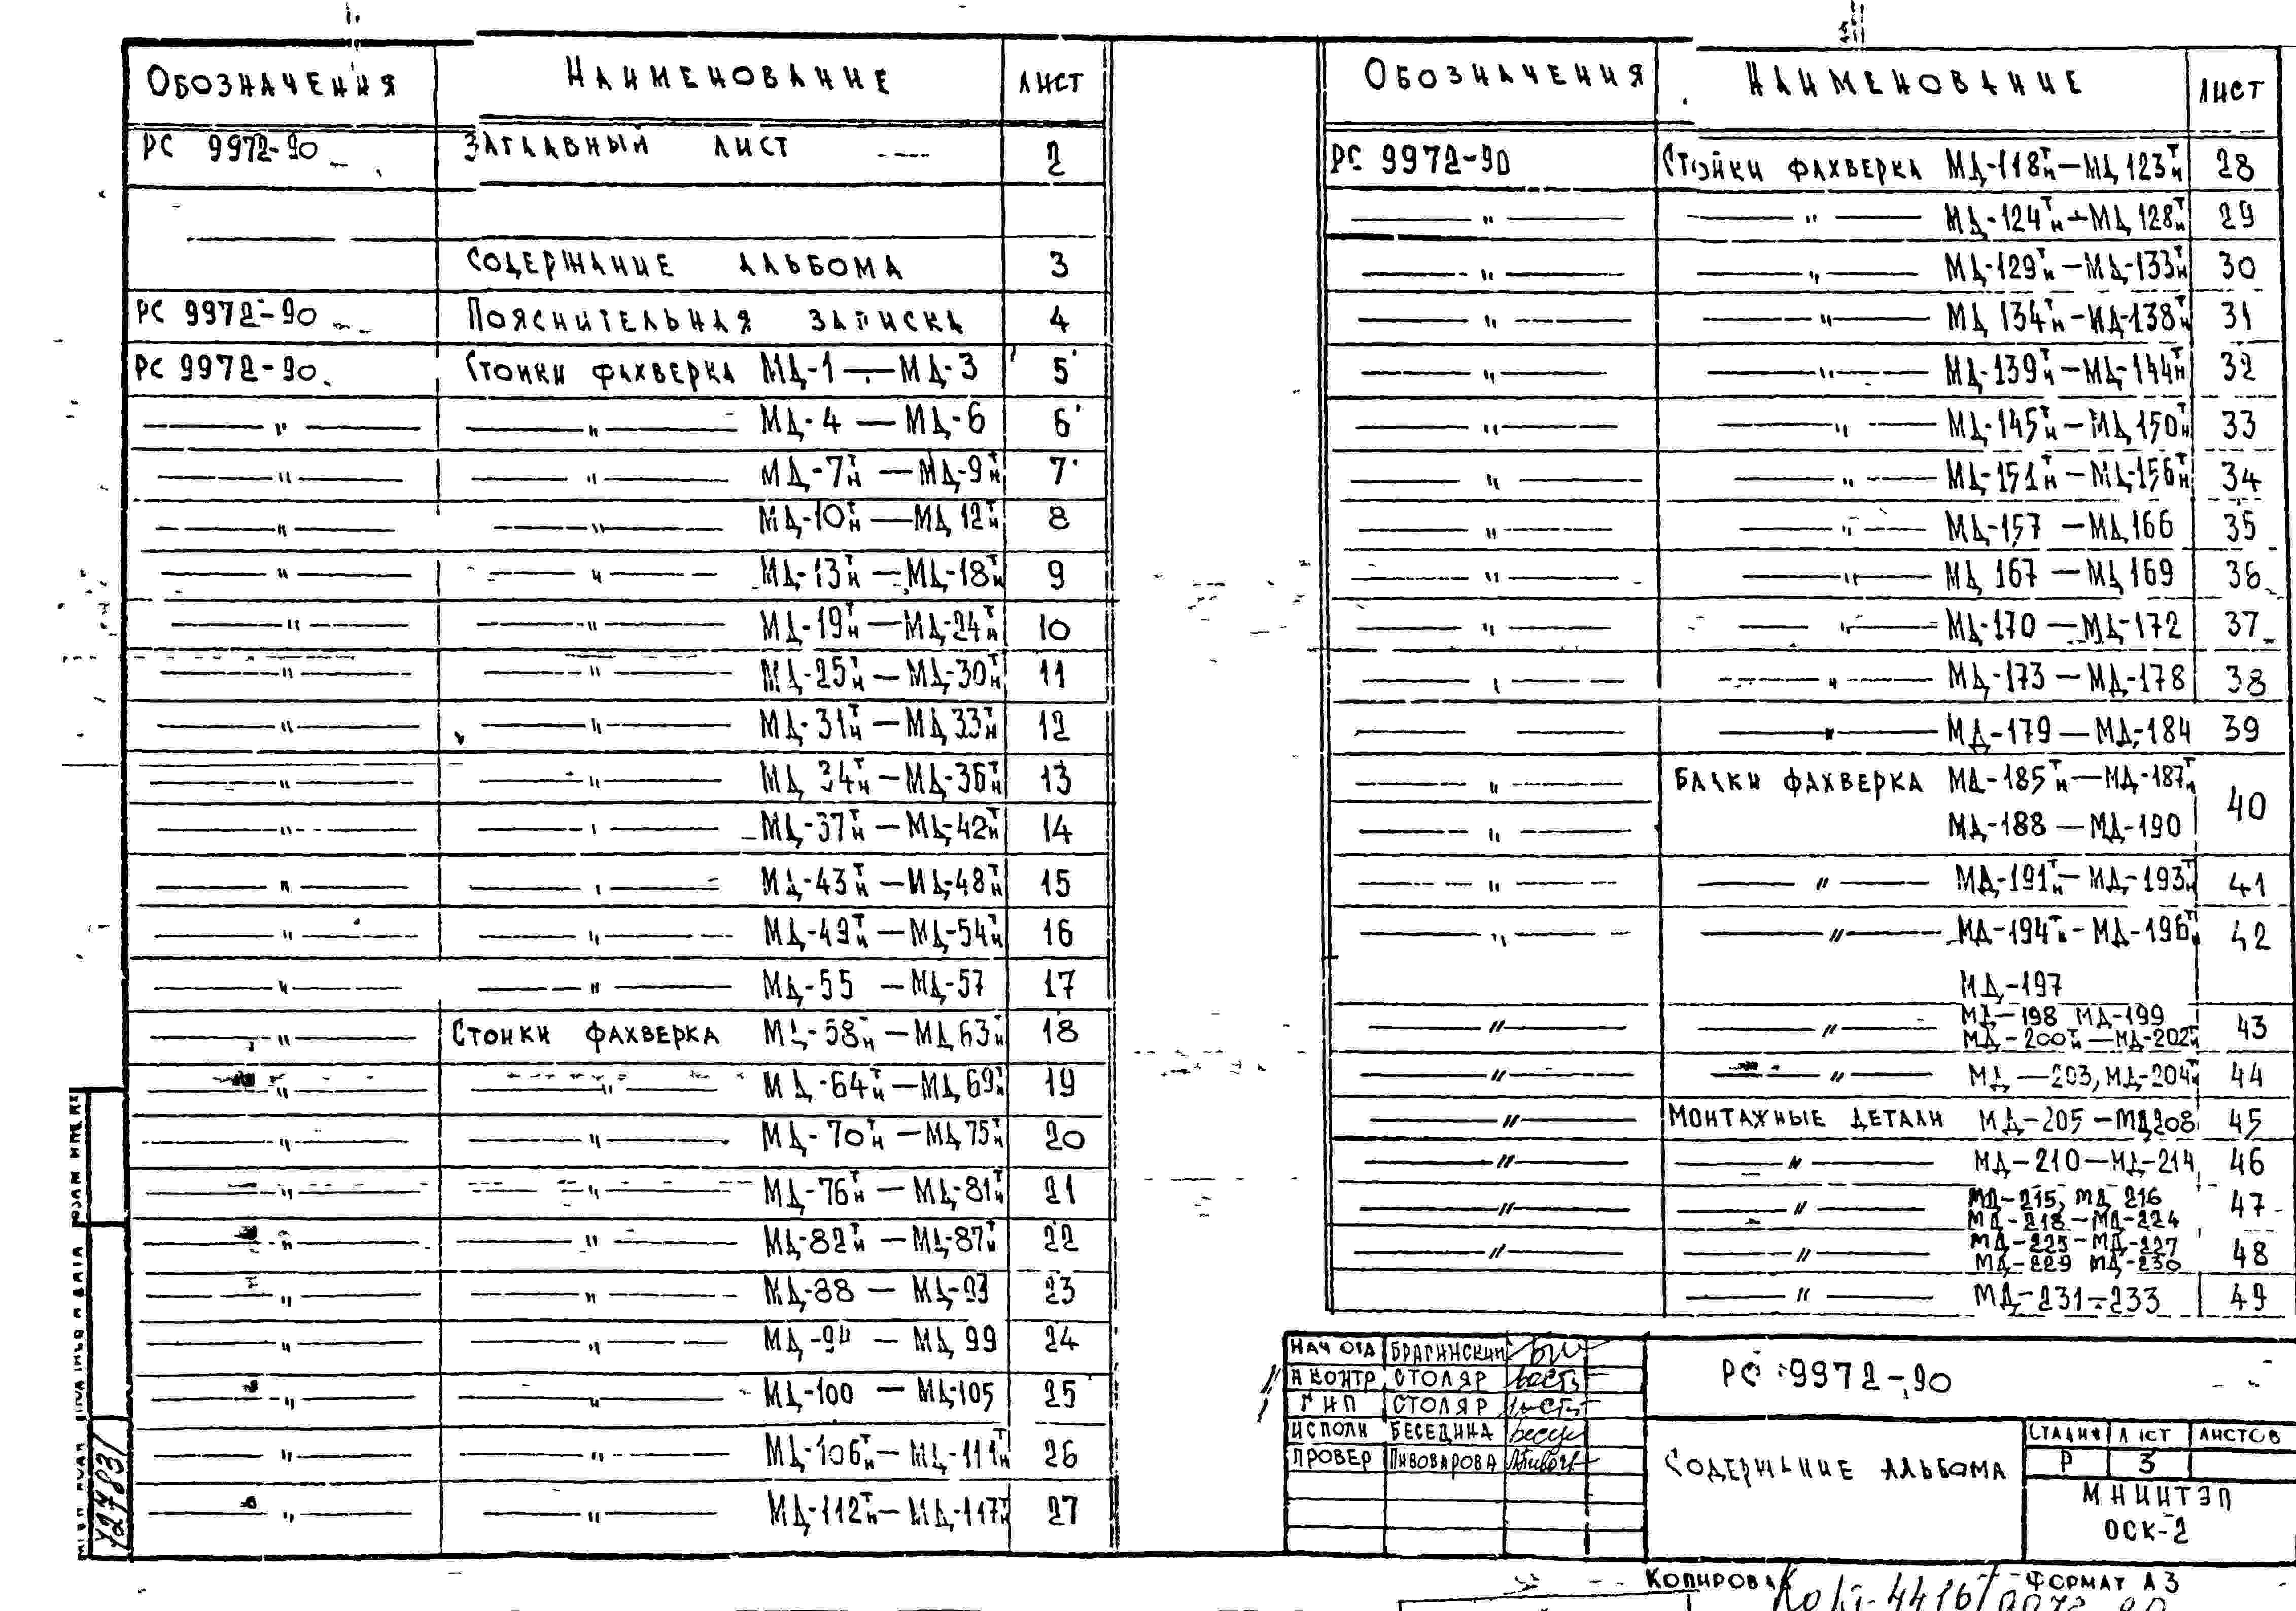 ОБОЗНАЧЕНИЯ НАИМЕНОВАНИЕ ЛИСТ
РС 9972-90 ЗАГЛАВНЫЙ ЛИСТ 2
СОДЕРЖАНИЕ АЛЬБОМА 3
РС 9972-90 ПОЯСНИТЕЛЬНАЯ ЗАПИСКА 4
РС 9972-90 СТОЙКИ ФАХВЕРКА МД-1 — МД-3 5
— " — — " — МД-4 — МД-6 6
— " — — " — МД-7тн — МД-9тн 7
— " — — " — МД-10тн — МД 12тн 8
— " — — " — МД-13тн — МД-18тн 9
— " — — " — МД-19тн — МД-24тн 10
— " — — " — МД-25тн — МД-30тн 11
— " — — " — МД-31тн — МД 33тн 12
— " — — " — МД 34тн — МД-36тн 13
— " — — " — МД-37тн — МД-42тн 14
— " — — " — МД-43тн — МД-48тн 15
— " — — " — МД-49тн — МД-54тн 16
— " — — " — МД-55 — МД-57 17
— " — СТОЙКИ ФАХВЕРКА МД-58тн — МД 63тн 18
— " — — " — МД-64тн — МД 69тн 19
— " — — " — МД-70тн — МД 75тн 20
— " — — " — МД-76тн — МД-81тн 21
— " — — " — МД-82тн — МД-87тн 22
— " — — " — МД-88 — МД-93 23
— " — — " — МД-94 — МД 99 24
— " — — " — МД-100 — МД-105 25
— " — — " — МД-106тн — МД-111тн 26
— " — — " — МД-112тн — МД-117тн 27
ОБОЗНАЧЕНИЯ НАИМЕНОВАНИЕ ЛИСТ
РС 9972-90 СТОЙКИ ФАХВЕРКА МД-118тн — МД 123тн 28
— " — — " — МД-124тн — МД 128тн 29
— " — — " — МД-129тн — МД-133тн 30
— " — — " — МД 134тн — МД-138тн 31
— " — — " — МД-139тн — МД-144тн 32
— " — — " — МД-145тн — МД 150тн 33
— " — — " — МД-151тн — МД-156тн 34
— " — — " — МД-157 — МД 166 35
— " — — " — МД 167 — МД 169 36
— " — — " — МД-170 — МД-172 37
— " — — " — МД-173 — МД-178 38
— — — " — МД-179 — МД-184 39
— " — БАЛКИ ФАХВЕРКА МД-185тн — МД-187тн 40
— " — МД-188 — МД-190
— " — — " — МД-191тн — МД-193тн 41
— " — — " — МД-194тн - МД-196тн 42
МД-197
— " — — " — МД-198 МД-199 43
МД-200тн — МД-202тн
— " — — " — МД — 203, МД-204тн 44
— " — МОНТАЖНЫЕ ДЕТАЛИ МД-205 — МД208 45
— " — — " — МД-210 — МД-214 46
— " — — " — МД-215, МД 216 47
МД-218 — МД-224
— " — — " — МД-225 — МД-227 48
МД-229 МД-230
— " — МД-231-233 49
НАЧ ОТД БРАГИНСКИЙ
Н КОНТР СТОЛЯР
ГИП СТОЛЯР
ИСПОЛН БЕСЕДИНА
ПРОВЕР ПИВОВАРОВА
РС 9972-90
СОДЕРЖАНИЕ АЛЬБОМА
СТАДИЯ ЛИСТ ЛИСТОВ
Р 3
МНИИТЭП
ОСК-2
КОПИРОВАЛ ФОРМАТ А3